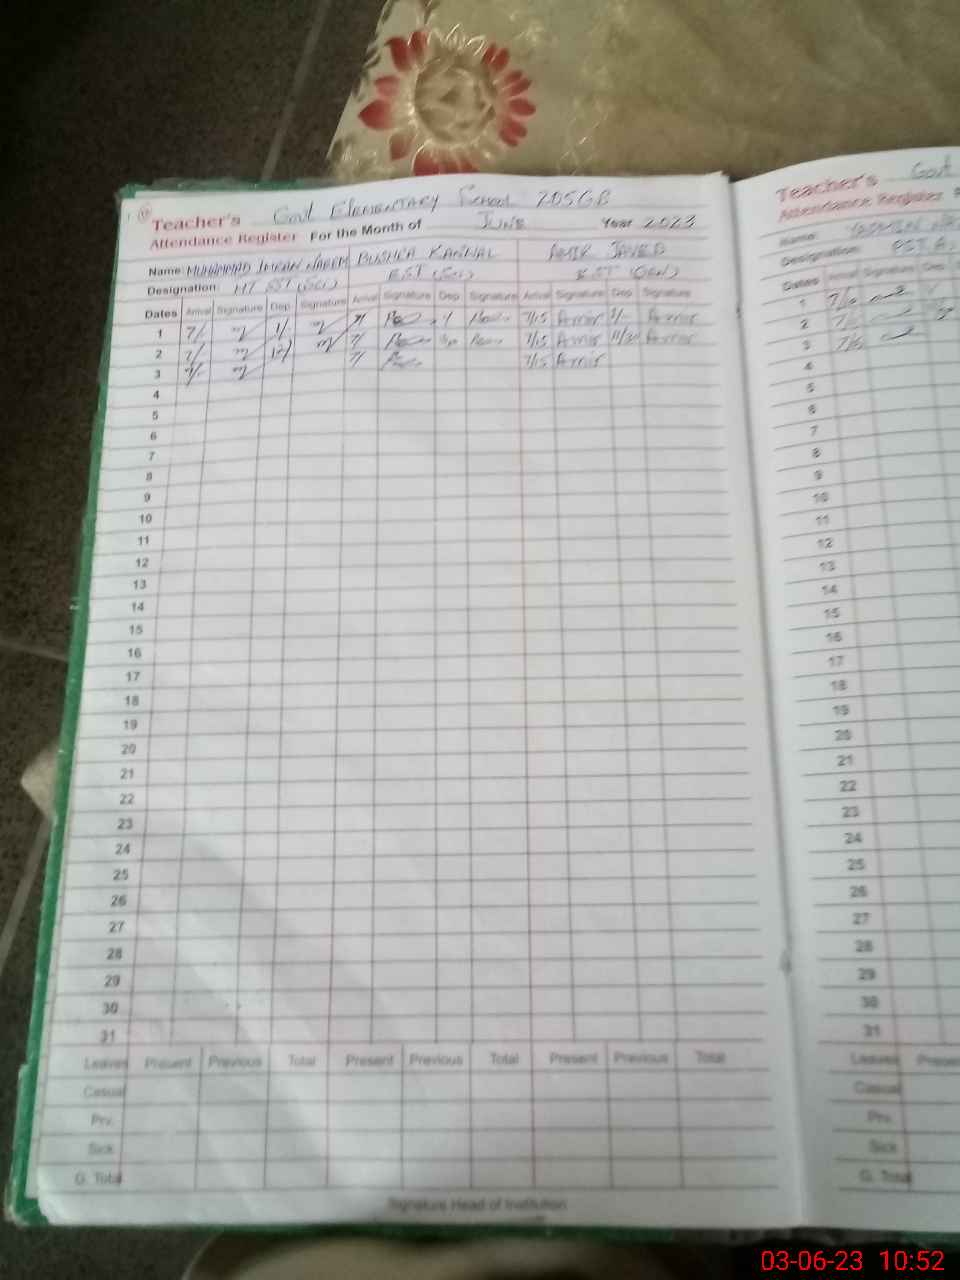 Teacher's Govt ELEMENTARY School 205GB
Attendance Register For the Month of JUNE Year 2023
Name: MUHAMMAD IMRAN NAEEM BUSHRA KANWAL AMIR JAVED
Designation: EST (Sci) EST (Gen)
Dates Arrival Signature Dep. Signature Arrival Signature Dep. Signature Arrival Signature Dep. Signature
1 7/15 Amir Amir
2 7/15 Amir 11/30 Amir
3 7/15 Amir
4
5
6
7
8
9
10
11
12
13
14
15
16
17
18
19
20
21
22
23
24
25
26
27
28
29
30
31
Leaves Present Previous Total Present Previous Total Present Previous Total
Casual
Prv.
Sick
G. Total
Signature Head of Institution
Govt
Teacher's
Attendance Register
Name: YASMEEN
Designation: PST
Dates Arrival Signature Dep.
1
2
3
4
5
6
7
8
9
10
11
12
13
14
15
16
17
18
19
20
21
22
23
24
25
26
27
28
29
30
31
Leaves Present
Casual
Prv.
Sick
G. Total
03-06-23 10:52